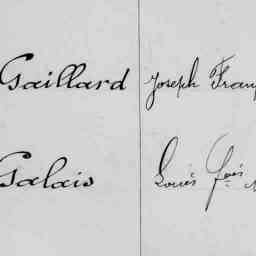 Gaillard Joseph Franç
Galais Louis Fois